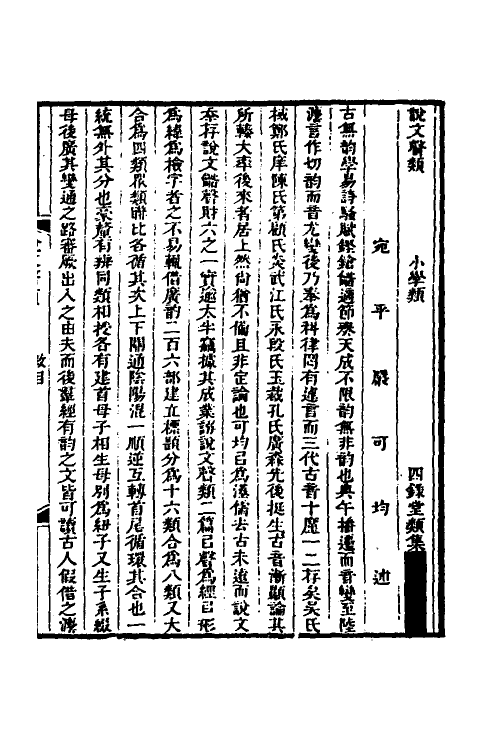 說文聲類　小學類　四錄堂類集
宛平嚴可均述
古無韵學易詩騷賦鏗鎗諧適節奏天成不限韵無非韵也典午播遷而音變至陸
灋言作切韵而音尤變後乃奉為科律罔有違言而三代古音十廑一二存矣吳氏
棫鄭氏庠陳氏第顧氏炎武江氏永段氏玉裁孔氏廣森先後挺生古音漸顯論其
所轃大率後來者居上然尙猶不備且非定論也可均㠯為漢儒去古未遠而說文
奉存說文龤聲財六之一實逾太半竊據其成業譔說文聲類二篇㠯聲為經㠯形
為緯為檢字者之不易輒借廣韵二百六部建立標題分為十六類合為八類又大
合為四類眾類聯比各循其次上下關通陰陽混一順逆互轉首尾循環其合也一
統無外其分也豪釐有辨同類相从各有建首母子相生母別為紐子又生子系綴
母後廣其變通之路審厥出入之由夫而後羣經有韵之文皆可讀古人假借之灋
敘目